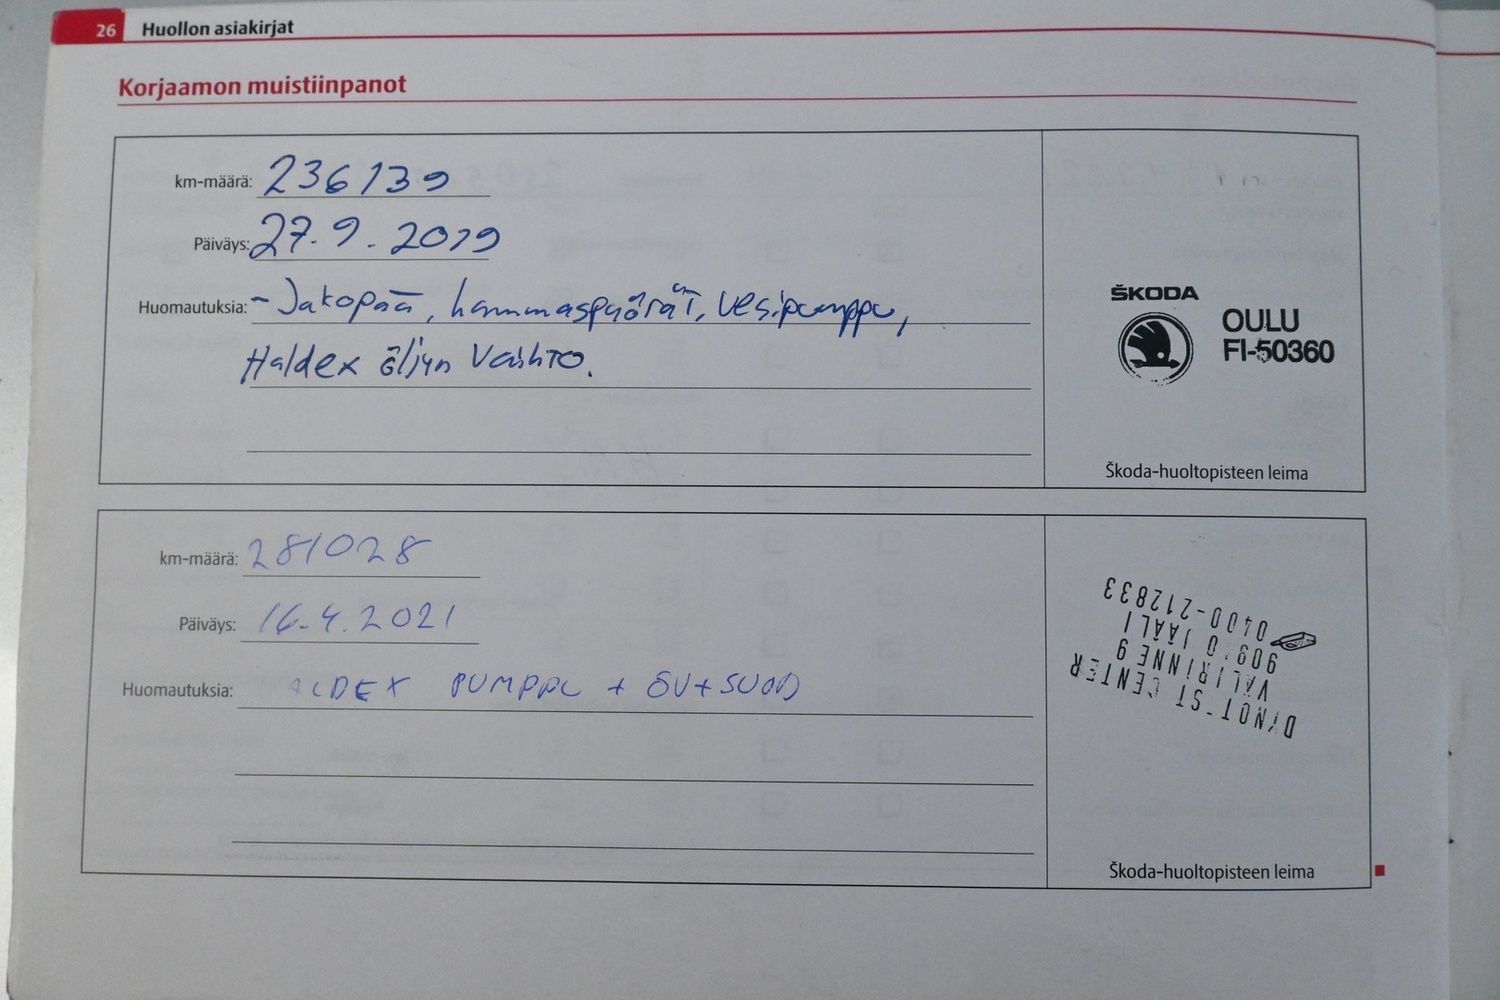 26 Huollon asiakirjat
Korjaamon muistiinpanot
km-määrä: 236139
Päiväys: 27.9.2019
Huomautuksia: - Jakopää, hammaspyörät, vesipumppu,
Haldex öljyn vaihto.
ŠKODA
OULU
FI-50360
Škoda-huoltopisteen leima
km-määrä: 281028
Päiväys: 16.4.2021
Huomautuksia: PUMPPU + ÖV+SUOD
CENTER
VÄLIRINNE 9
JÄÄLI
0400-212833
Škoda-huoltopisteen leima